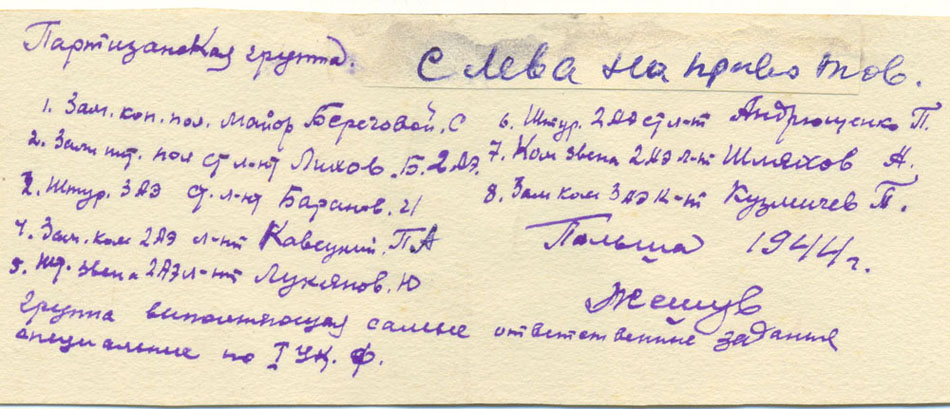 Партизанская группа.
Слева на право тов.
1. Зам. ком. пол. майор Береговой. С
2. Зам. шт. пол ст л-нт Лихов. Б. 2 АЭ.
2. Штур. 3 АЭ ст. л-нт Баранов. И
4. Зам. ком 2 АЭ л-нт Кавецкий. П А
5. Шт. звена 2 АЭ л-нт Лукянов. Ю
6. Штур. 2 АЭ ст л-нт Андрющенко П.
7. Ком звена 2 АЭ л-нт Шляхов А.
8. Зам ком 3 АЭ к-нт Кузмичев П.
Польша 1944 г.
Жешув
Группа выполняющая самые ответственние задания
специальние по I Ук. Ф.